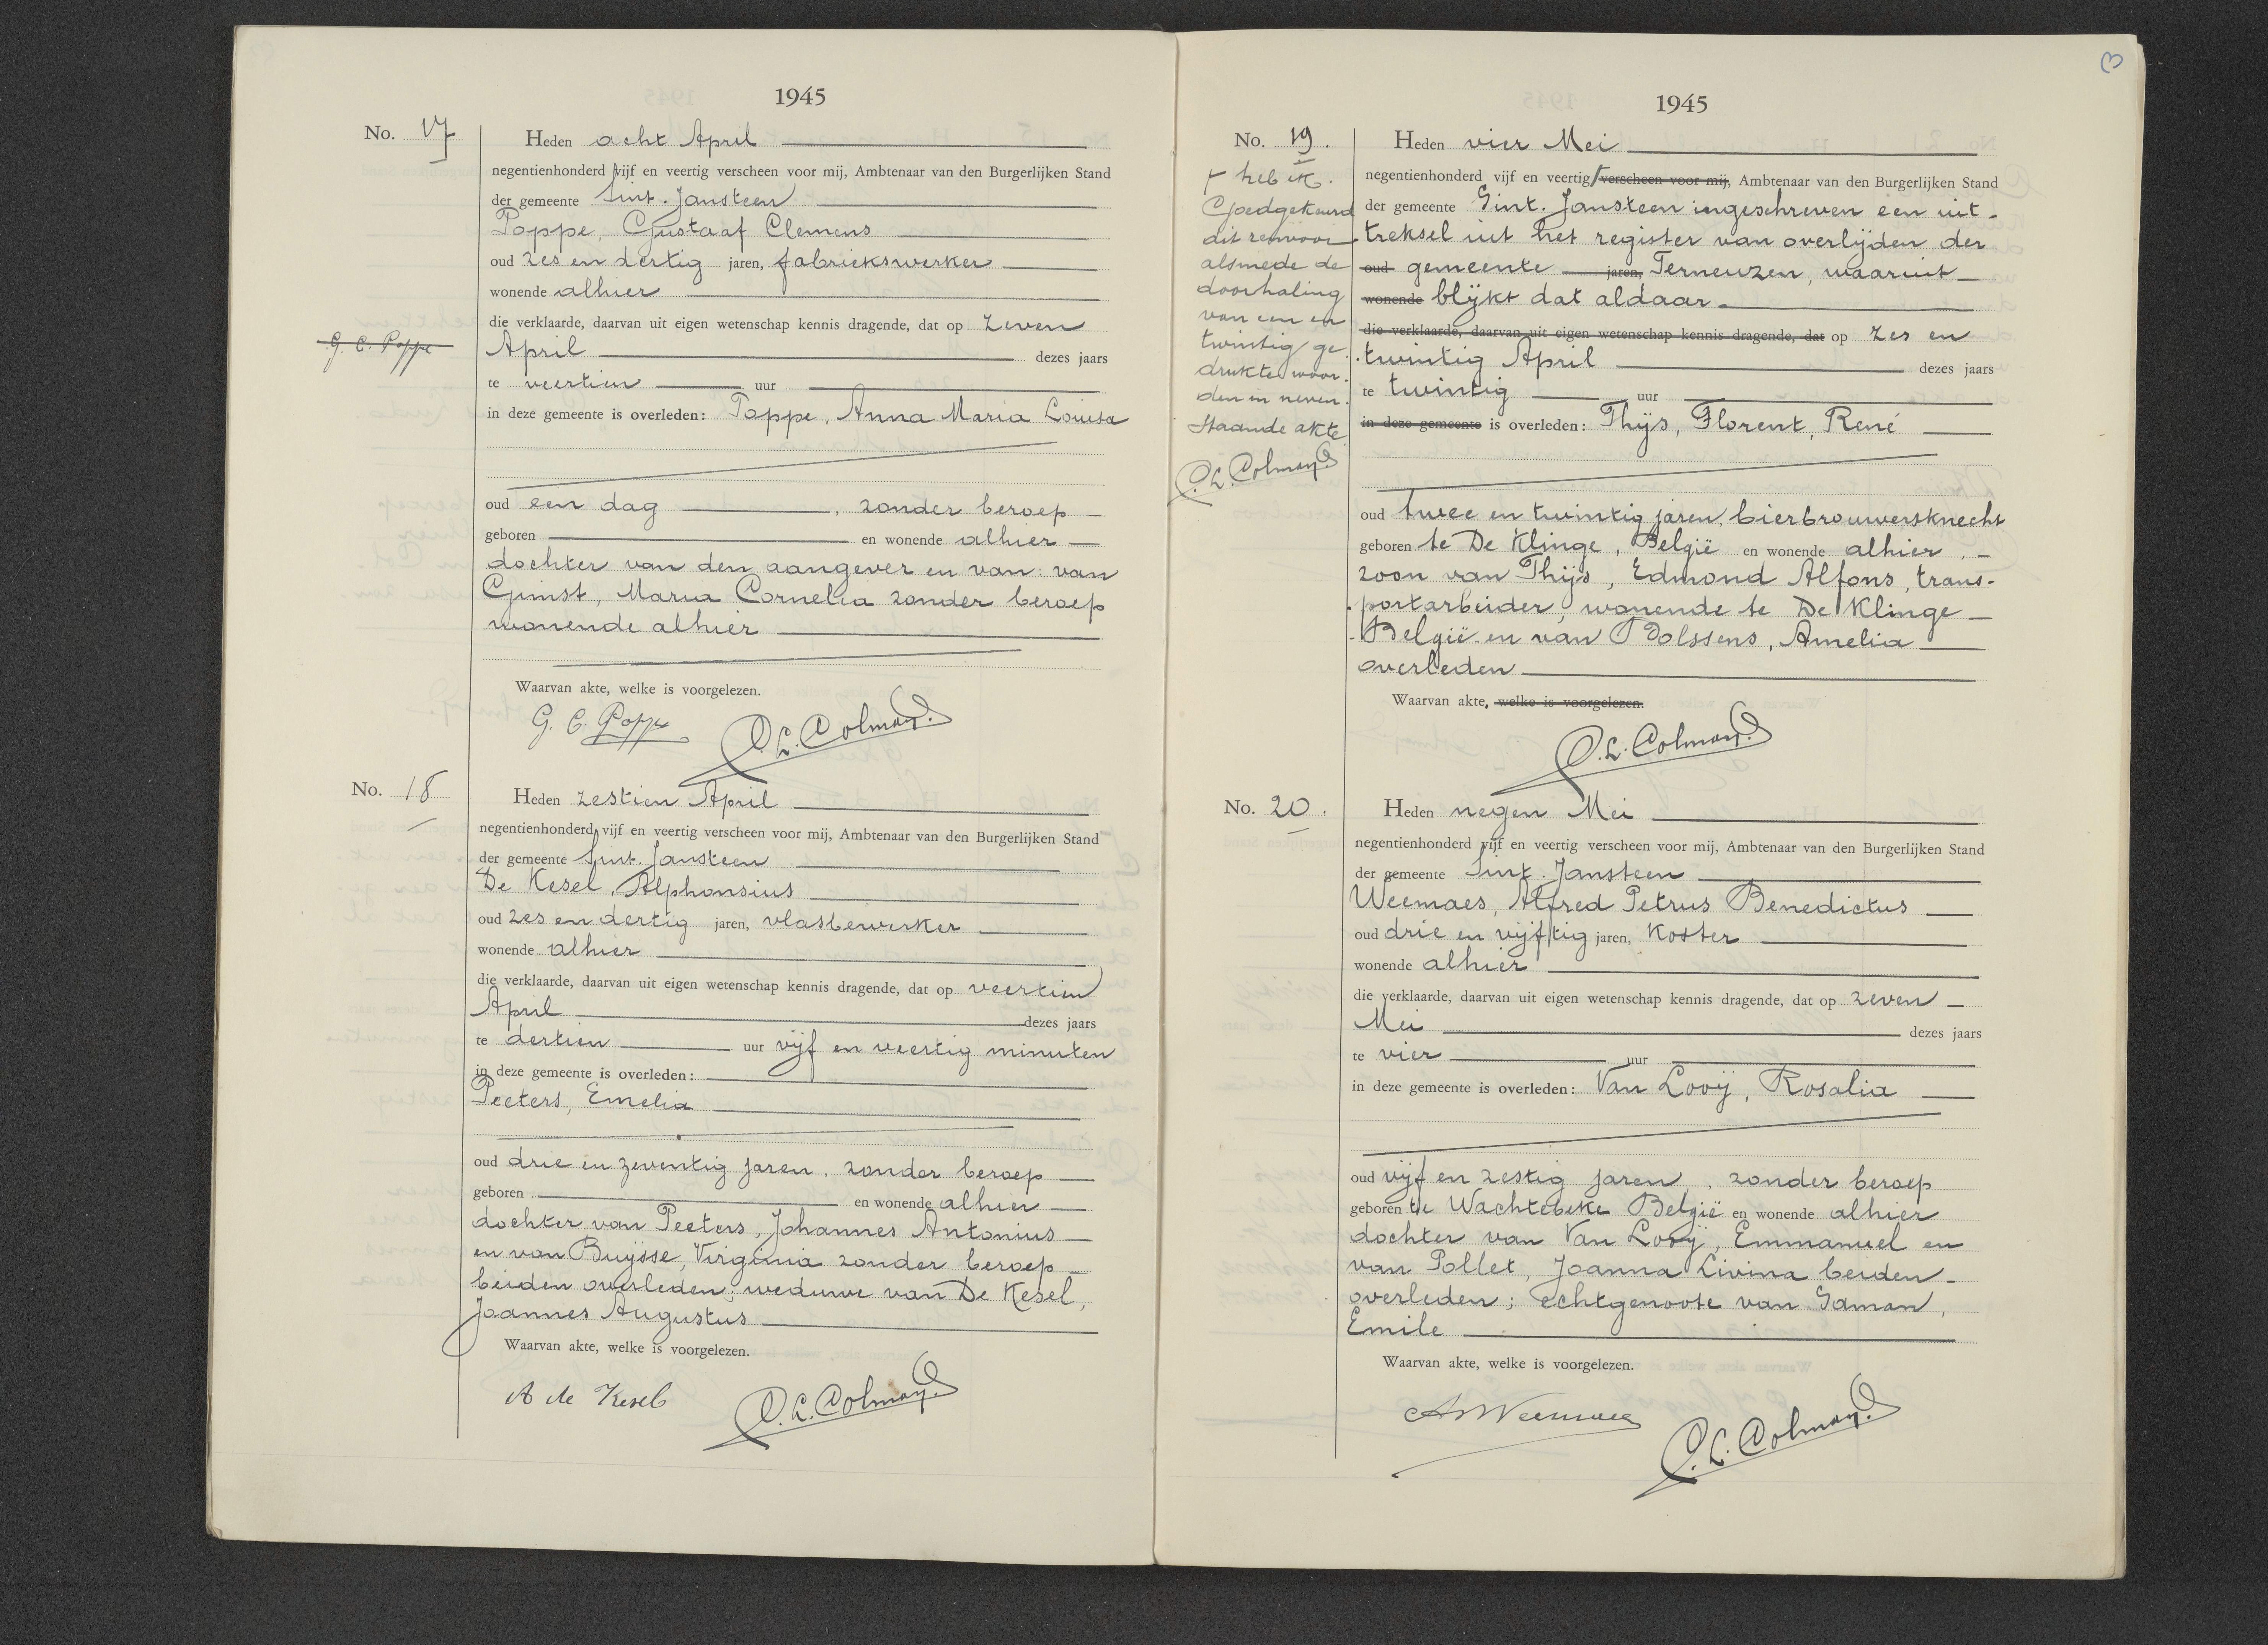 1945
No. 17
Heden acht April
negentienhonderd vijf en veertig verscheen voor mij, Ambtenaar van den Burgerlijken Stand
der gemeente Sint. Jansteen
Poppe, Gustaaf Clemens
oud zes en dertig jaren, fabriekswerker
wonende alhier
die verklaarde, daarvan uit eigen wetenschap kennis dragende, dat op zeven
G. C. Poppe
April dezes jaars
te veertien uur
in deze gemeente is overleden: Poppe, Anna Maria Louisa
oud een dag , zonder beroep
geboren en wonende alhier
dochter van den aangever en van: van
Ginst, Maria Cornelia zonder beroep
wonende alhier
Waarvan akte, welke is voorgelezen.
G. C. Poppe C. L. Colman
No. 18
Heden zestien April
negentienhonderd vijf en veertig verscheen voor mij, Ambtenaar van den Burgerlijken Stand
der gemeente Sint. Jansteen
De Kesel, Alphonsius
oud zes en dertig jaren, vlasbewerker
wonende alhier
die verklaarde, daarvan uit eigen wetenschap kennis dragende, dat op veertien
April dezes jaars
te dertien uur vijf en veertig minuten
in deze gemeente is overleden:
Peeters, Emelia
oud drie en zeventig jaren, zonder beroep
geboren en wonende alhier
dochter van Peeters, Johannes Antonius
en van Buijsse, Virginia zonder beroep
beiden overleden; weduwe van De Kesel,
Joannes Augustus
Waarvan akte, welke is voorgelezen.
A de Kesel C. L. Colman
3
1945
No. 19.
Heden vier Mei
negentienhonderd vijf en veertig verscheen voor mij, Ambtenaar van den Burgerlijken Stand
der gemeente Sint. Jansteen ingeschreven een uit-
treksel uit het register van overlijden der
oud gemeente jaren, Terneuzen, waaruit
wonende blijkt dat aldaar
die verklaarde, daarvan uit eigen wetenschap kennis dragende, dat op zes en
twintig April dezes jaars
te twintig uur
in deze gemeente is overleden: Thijs, Florent, René
oud twee en twintig jaren, bierbrouwersknecht
geboren te De Klinge, België en wonende alhier,
zoon van Thijs, Edmond Alfons, trans-
portarbeider, wonende te De Klinge
België en van Dolssens, Amelia
overleden
Waarvan akte, welke is voorgelezen.
C. L. Colman
heb ik.
Goedgekeurd
dit renvooi
alsmede de
doorhaling
van een en
twintig ge
drukte woor-
den in neven-
staande akte
C. L. Colman
No. 20.
Heden negen Mei
negentienhonderd vijf en veertig verscheen voor mij, Ambtenaar van den Burgerlijken Stand
der gemeente Sint. Jansteen
Weemaes, Alfred Petrus Benedictus
oud drie en vijftig jaren, Koster
wonende alhier
die verklaarde, daarvan uit eigen wetenschap kennis dragende, dat op zeven
Mei dezes jaars
te vier uur
in deze gemeente is overleden: Van Looij, Rosalia
oud vijf en zestig jaren, zonder beroep
geboren te Wachtebeke België en wonende alhier
dochter van Van Looij, Emmanuel en
van Pollet, Joanna Livina beiden
overleden; echtgenoote van Saman,
Emile
Waarvan akte, welke is voorgelezen.
A Weemaes C. L. Colman